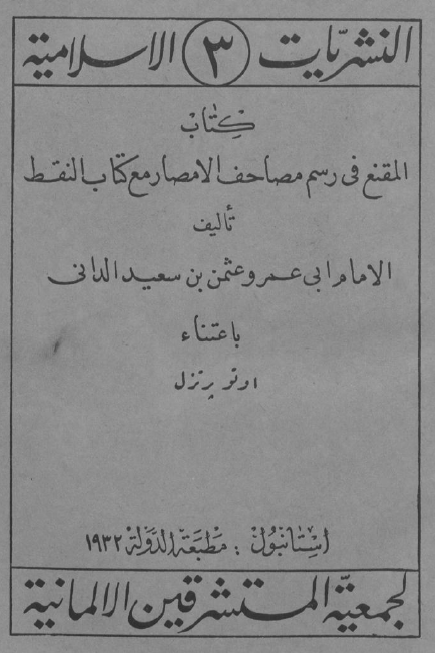 النشريّات ٣ الاسلامية
كِتَابُ
المقنع فى رسم مصاحف الامصار مع كتاب النقط
تأليف
الامام ابى عمرو عثمن بن سعيد الدانى
باعتناء
اوتو پرتزل
اِسْتَانبُولْ : مَطْبَعَة الدَّوْلَة ١٩٣٢
لجمعيّة المستشرقين الالمانية